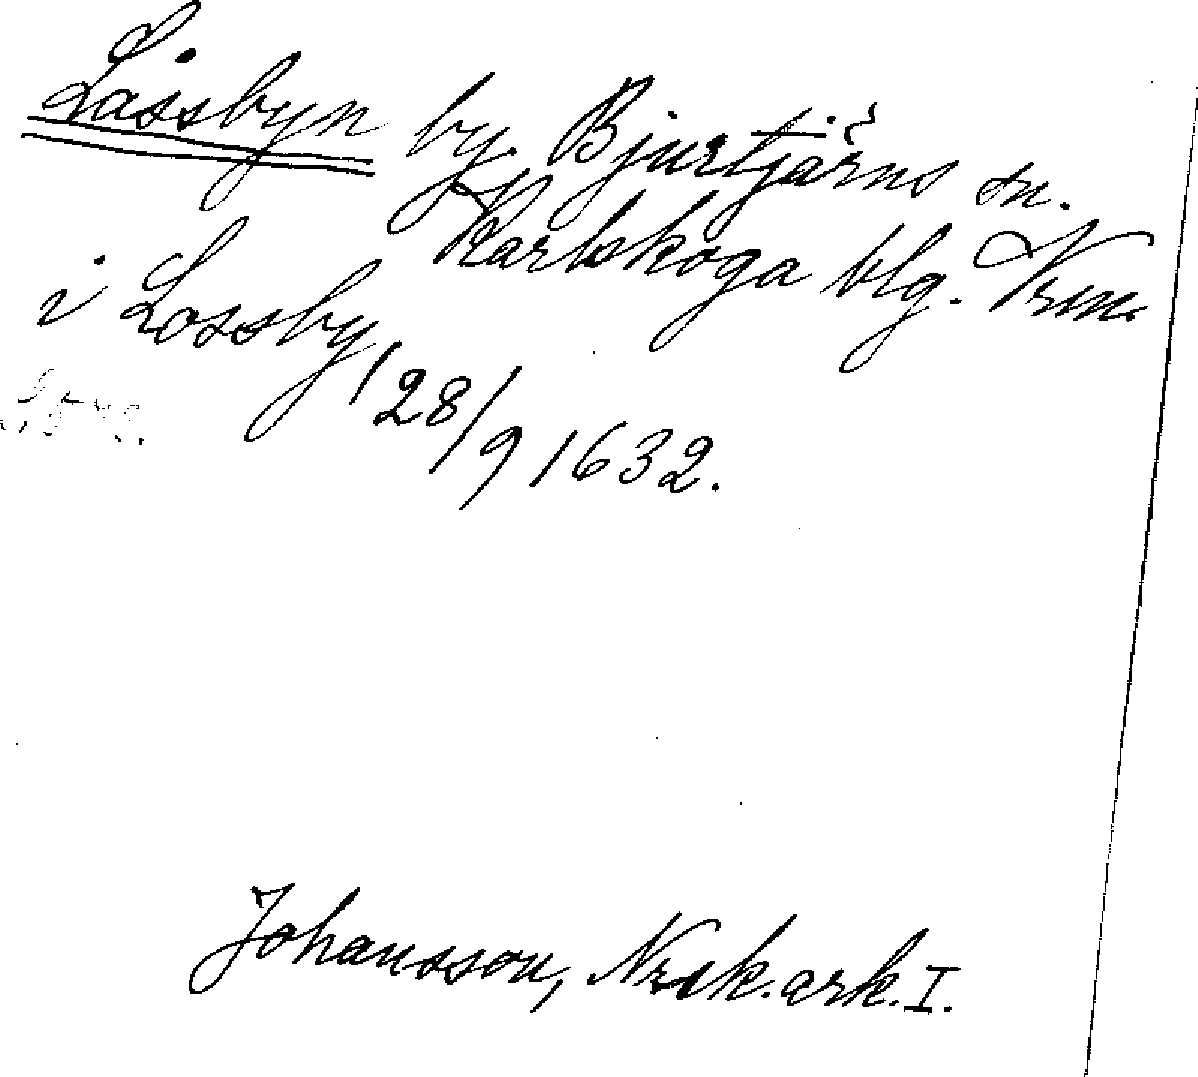 Låssbyn by. Bjurtjärns sn.
Karlskoga blg. Vrm.
i Lossby 28/9 1632.
Johansson, Nrsk. ark. I.